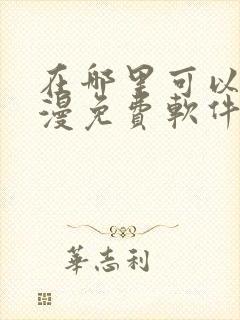 在哪里可以
漫免費軟件
華志利